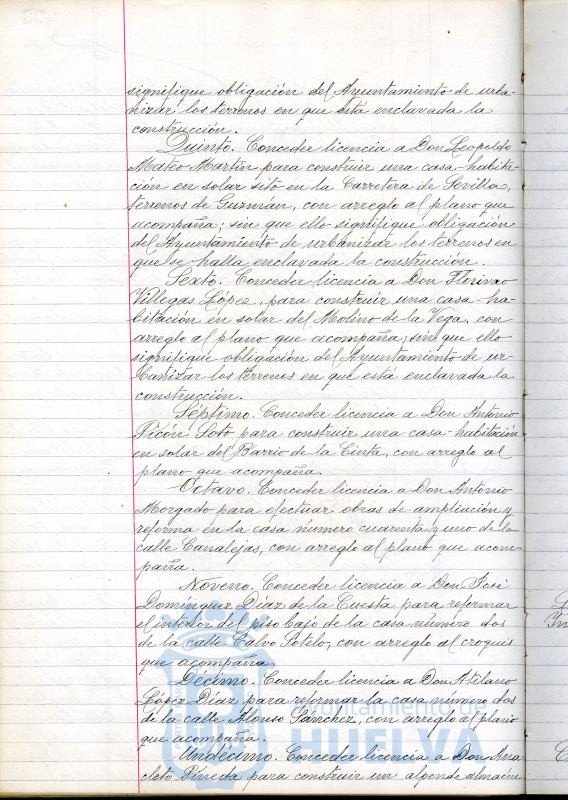 signifique obligación del Ayuntamiento de urba-
nizar los terrenos en que está enclavada la
construcción.
Quinto. Conceder licencia a Don Leopoldo
Mateo Martín para construir una casa-habita-
ción en solar sito en la Carretera de Sevilla,
terrenos de Guzmán, con arreglo al plano que
acompaña; sin que ello signifique obligación
del Ayuntamiento de urbanizar los terrenos en
que se halla enclavada la construcción.
Sexto. Conceder licencia a Don
Villegas López, para construir una casa-ha-
bitación en solar del Molino de la Vega, con
arreglo al plano que acompaña; sin que ello
signifique obligación del Ayuntamiento de ur-
banizar los terrenos en que está enclavada la
construcción.
Séptimo. Conceder licencia a Don Antonio
Picón Soto para construir una casa-habitación
en solar del Barrio de la Cinta, con arreglo al
plano que acompaña.
Octavo. Conceder licencia a Don Antonio
Morgado para efectuar obras de ampliación y
reforma en la casa número cuarenta y uno de la
calle Canalejas, con arreglo al plano que acom-
paña.
Noveno. Conceder licencia a Don José
Domínguez Díaz de la Cuesta para reformar
el interior del piso bajo de la casa número dos
de la calle Calvo Sotelo, con arreglo al croquis
que acompaña.
Décimo. Conceder licencia a Don Atilano
López Díaz para reformar la casa número dos
de la calle Alonso Sánchez, con arreglo al plano
que acompaña.
Undécimo. Conceder licencia a Don Ana
cleto Pineda para construir un alpende almacén
Ayuntamiento de
HUELVA